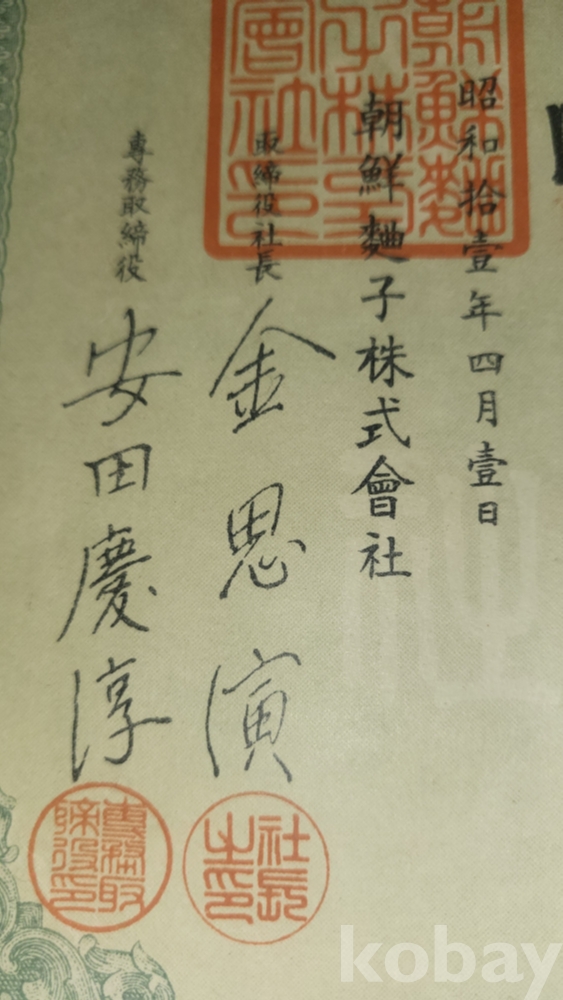 昭和拾壹年四月壹日
朝鮮麯子株式會社
朝鮮麯子株式會社印
取締役社長 金思演
社長之印
專務取締役 安田慶淳
專務取締役印
kobay